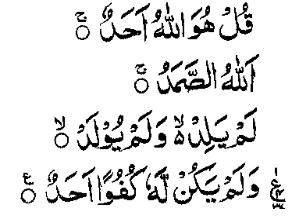 قُلْ هُوَ اللّٰهُ اَحَدٌ ۚ
اَللّٰهُ الصَّمَدُ ۚ
لَمْ يَلِدْ ۙ وَلَمْ يُوْلَدْ ۙ
وَلَمْ يَكُنْ لَّهٗ كُفُوًا اَحَدٌ